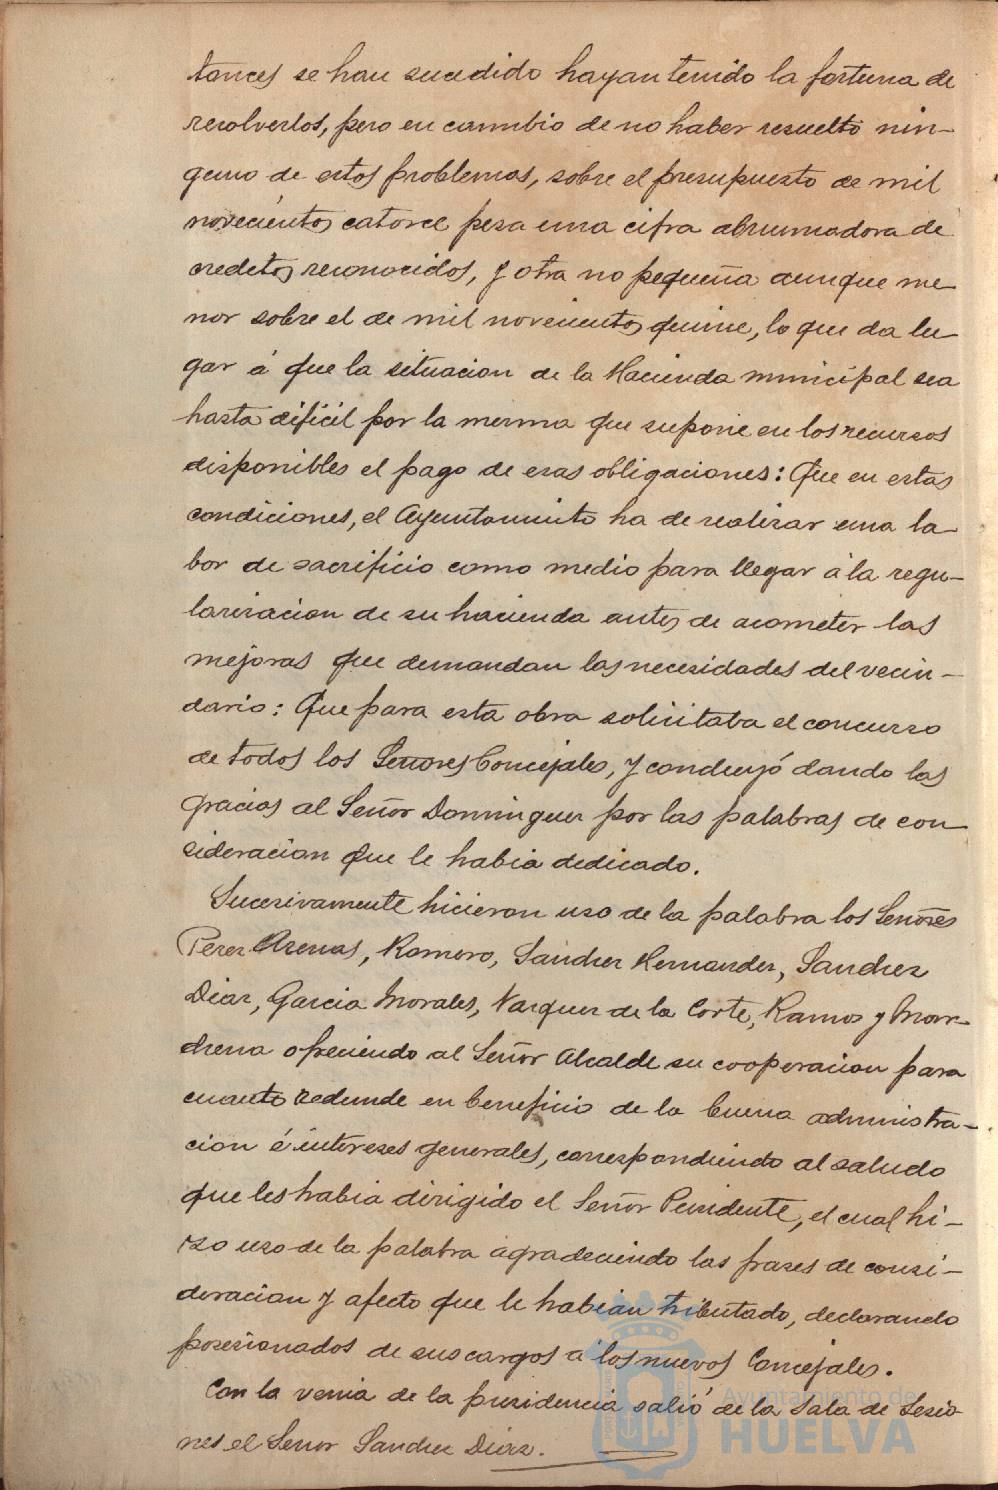 tonces se han sucedido hayan tenido la fortuna de
resolverlos, pero en cambio de no haber resuelto nin-
guno de estos problemas, sobre el presupuesto de mil
novecientos catorce pesa una cifra abrumadora de
credetos reconocidos, y otra no pequeña aunque me-
nor sobre el de mil novecientos quince, lo que da lu-
gar á que la situacion de la Hacienda municipal sea
hasta dificil por la merma que supone en los recursos
disponibles el pago de esas obligaciones: Que en estas
condiciones, el Ayuntamiento ha de realizar una la-
bor de sacrificio como medio para llegar á la regu-
larizacion de su hacienda antes de acometer las
mejoras que demandan las necesidades del vecin-
dario: Que para esta obra solicitaba el concurso
de todos los Señores Concejales, y concluyó dando las
gracias al Señor Dominguez por las palabras de con-
sideracion que le habia dedicado.
Sucesivamente hicieron uso de la palabra los Señores
Perez Arenas, Romero, Sanchez Hernandez, Sanchez
Diaz, Garcia Morales, Vazquez de la Corte, Ramos y Mar-
chena ofreciendo al Señor Alcalde su cooperacion para
cuanto redunde en beneficio de la buena administra-
cion é intereses generales, correspondiendo al saludo
que les habia dirigido el Señor Presidente, el cual hi-
zo uso de la palabra agradeciendo las frases de consi-
deracion y afecto que le habian tributado, declarando
posesionados de sus cargos á los nuevos Concejales.
Con la venia de la presidencia salió de la Sala de Sesio-
nes el Señor Sanchez Diaz.
Ayuntamiento de
HUELVA